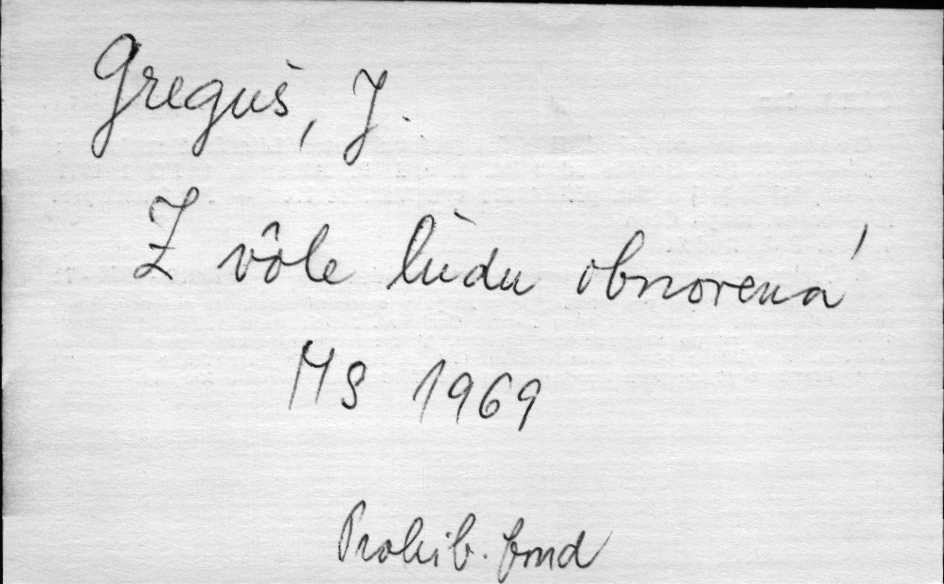 Greguš, J.
Z vôle ľudu obnovená
MS 1969
Prohib. fond